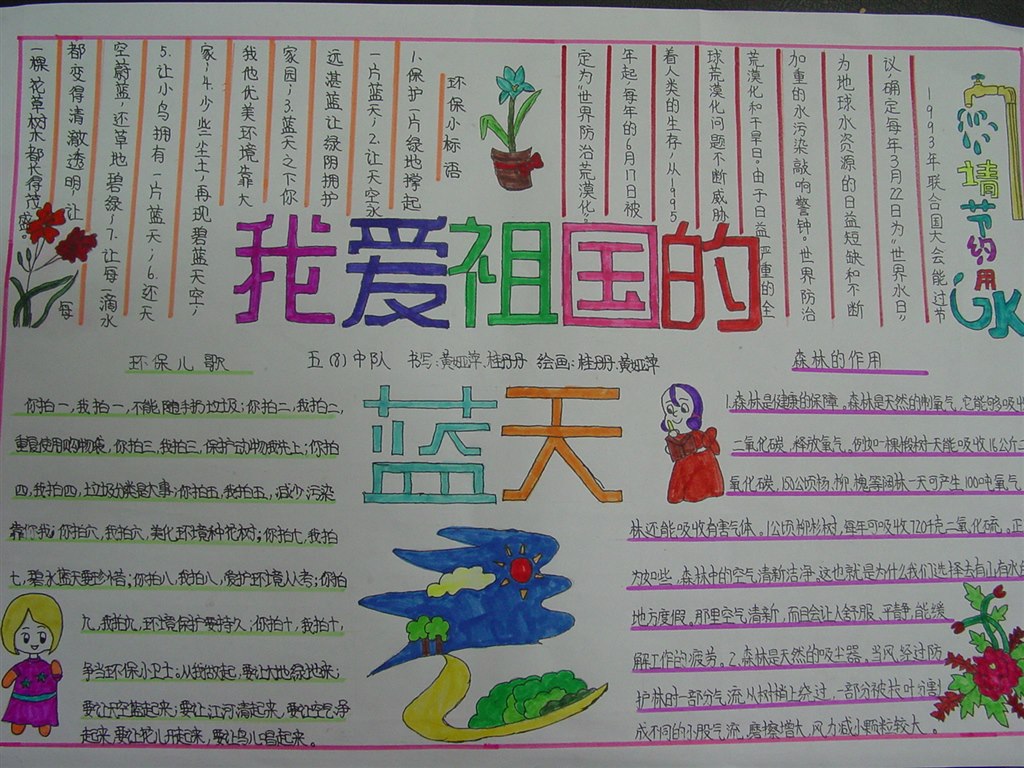 我爱祖国的
蓝天
请节约用
水
1993年联合国大会
议，确定每年3月22日为"世界水日"
为地球水资源的日益短缺和不断
加重的水污染敲响警钟。世界防治
荒漠化和干旱日。由于日益严重的全
球荒漠化问题不断威胁
着人类的生存，从1995
年起，每年的6月17日被
定为"世界防治荒漠化。
环保小标语
1.保护一片绿地撑起
一片蓝天；2.让天空永
远湛蓝让绿阴拥护
家园；3.蓝天之下你
我他优美环境靠大
家；4.少些尘土，再现碧蓝天空；
5.让小鸟拥有一片蓝天；6.还天
空蔚蓝，还草地碧绿；7.让每一滴水
都变得清澈透明，让每
一棵花草树木都长得茂盛。
环保儿歌
五(8)中队 书写：黄娅萍、桂丹丹 绘画：桂丹丹、黄娅萍
你拍一，我拍一，不能随手扔垃圾；你拍二，我拍二，
重复使用购物袋，你拍三，我拍三，保护动物我先上；你拍
四，我拍四，垃圾分类是大事；你拍五，我拍五，减少污染
靠你我；你拍六，我拍六，美化环境种花树；你拍七，我拍
七，碧水蓝天要珍惜；你拍八，我拍八，爱护环境人人夸；你拍
九，我拍九，环境保护要持久；你拍十，我拍十，
争当环保小卫士。从我做起，要让大地绿起来；
要让天空蓝起来；要让江河清起来，要让空气净
起来，要让花儿开起来，要让鸟儿唱起来。
森林的作用
1.森林是健康的保障。森林是天然的制氧气，它能够吸收
二氧化碳，释放氧气。例如一棵椴树一天能吸收16公斤二
氧化碳，150公顷杨、柳、槐等阔林一天可产生100吨氧气。
林还能吸收有害气体。1公顷柳杉树，每年可吸收720千克二氧化硫。正
为如些，森林中的空气清新洁净。这也就是为什么我们选择去有山有水的
地方度假。那里空气清新，而且会让人舒服、平静，能缓
解工作的疲劳。2.森林是天然的吸尘器。当风经过防
护林时一部分气流从树梢上绕过，一部分被枝叶分割
成不同的小股气流，磨擦增大，风力减小颗粒较大。